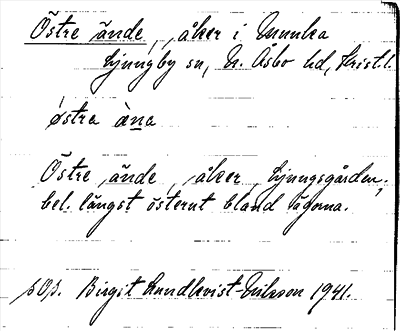 Östre ände, åker i Munka
Ljungby sn, N. Åsbo hd, Krist. l.
östra äna
Östre ände, åker, Ljungsgården,
bel. längst österut bland ägorna.
Birgit Lundkvist-Eriksson 1941.